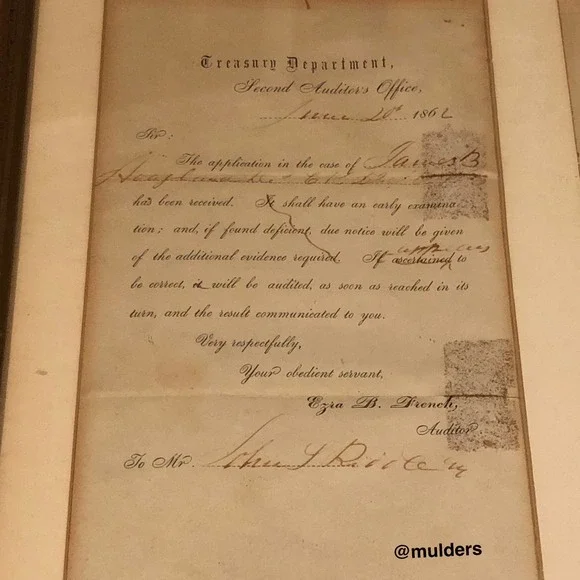 Treasury Department,
Second Auditor's Office,
June 1862
Sir:
The application in the case of James B
has been received. It shall have an early examina
tion; and, if found deficient, due notice will be given
of the additional evidence required. If ascertained to
be correct, it will be audited, as soon as reached in its
turn, and the result communicated to you.
Very respectfully,
Your obedient servant,
Ezra B. French,
Auditor
To Mr. John
@mulders